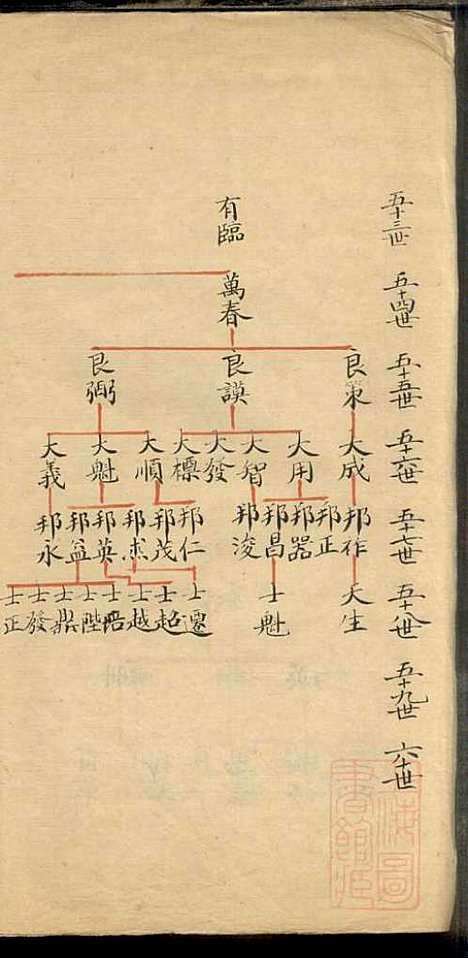 五十三世
五十四世
五十五世
五十六世
五十七世
五十八世
五十九世
六十世
有臨
萬春
良策
良謨
良弼
大成
大用
大智
大發
大標
大順
大魁
大義
邦祚
邦正
邦器
邦昌
邦浚
邦仁
邦茂
邦
邦英
邦益
邦永
天生
士魁
士選
士超
士越
士
士陛
士鼎
士發
士正
海圖
書館